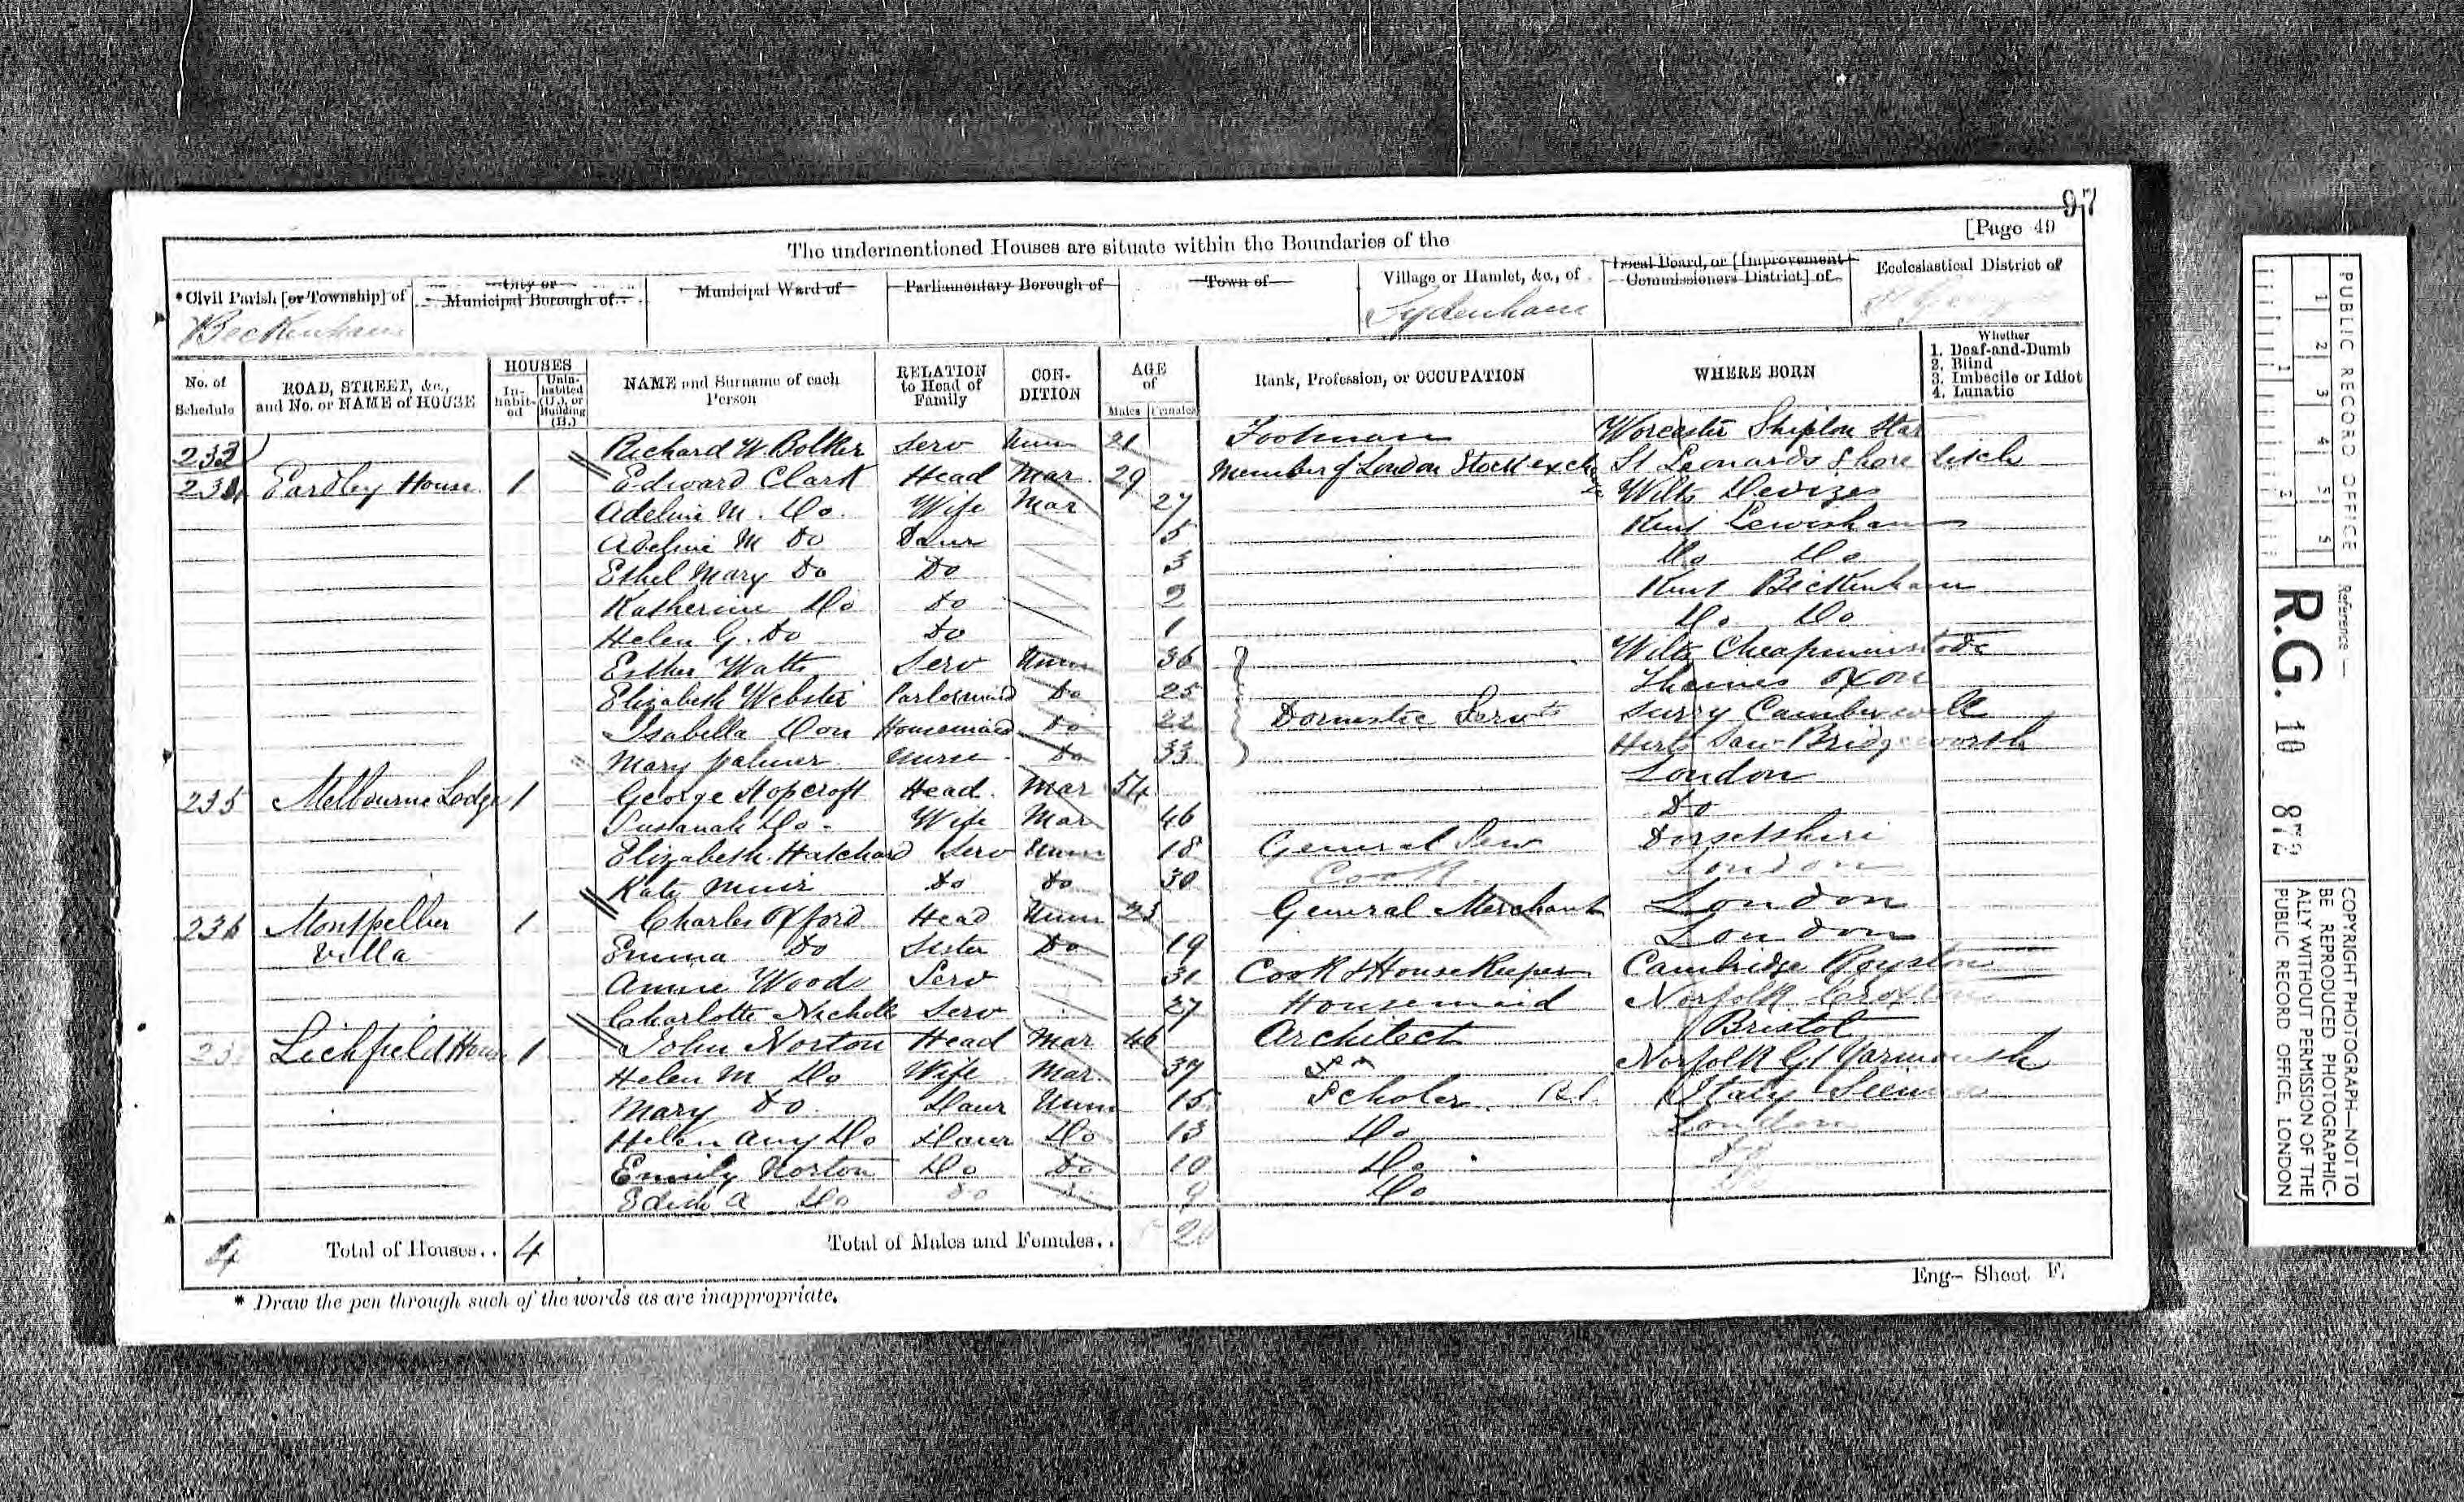 97
[Page 49
The undermentioned Houses are situate within the Boundaries of the
*Civil Parish [or Township] of
City or Municipal Borough of
Municipal Ward of
Parliamentary Borough of
Town of
Village or Hamlet, &c., of
Local Board, or [Improvement Commissioners District] of
Ecclesiastical District of
Beckenham
Sydenham
No. of Schedule
ROAD, STREET, &c., and No. or NAME of HOUSE
HOUSES
In-habit-ed
Unin-habited (U.), or Building (B.)
NAME and Surname of each Person
RELATION to Head of Family
CON-DITION
AGE of
Males
Females
Rank, Profession, or OCCUPATION
WHERE BORN
Whether
1. Deaf-and-Dumb
2. Blind
3. Imbecile or Idiot
4. Lunatic
233 Richard W. Bolker Serv Unm 21 Footman Worcester Shipton
234 Eardley House 1 Edward Clark Head Mar 29 Member of London Stock exch St Leonards Shore ditch
Adeline M. Do. Wife Mar 27 Wilts Devizes
Adeline M Do Daur 5 Kent Lewisham
Ethel Mary Do Do 3 Do Do
Katherine Do Do 2 Kent Beckenham
Helen G. Do Do 1 Do Do
Esther Watts Serv Unm 36 Wilts
Elizabeth Webster Parlormaid Do 25 Thames Oxon
Isabella Don Housemaid Do 22 Domestic Servts Surry Camberwell
Mary Palmer Nurse Do 33 Herts Saw-Bridgeworth
235 Melbourne Lodge 1 George Hopcroft Head Mar 54 London
Susanah Do. Wife Mar 46 Do
Elizabeth Hatchard Serv Unm 18 General Serv Dorsetshire
Kate Muir Do Do 30 Cook London
236 Montpellier Villa 1 Charles Offord Head Unm 23 General Merchant London
Emma Do Sister Do 19 London
Annie Woods Serv 31 Cook & HouseKeeper Cambridge Royston
Charlotte Nicholls Serv 27 Housemaid Norfolk
Lichfield House 1 John Norton Head Mar 46 Architect Bristol
Helen M Do Wife Mar. 37 Norfolk Gt Yarmouth
Mary Do Daur Unm 15 Scholar Italy
Helen Amy Do Daur Do 13 Do London
Emily Norton Do Do 10 Do Do
Edith A Do Do 9 Do
4 Total of Houses.. 4 Total of Males and Females..
Eng- Sheet F.
* Draw the pen through such of the words as are inappropriate.
PUBLIC RECORD OFFICE
1 2 3 4 5
Reference —
R.G. 10
COPYRIGHT PHOTOGRAPH—NOT TO
BE REPRODUCED PHOTOGRAPHIC-
ALLY WITHOUT PERMISSION OF THE
PUBLIC RECORD OFFICE, LONDON